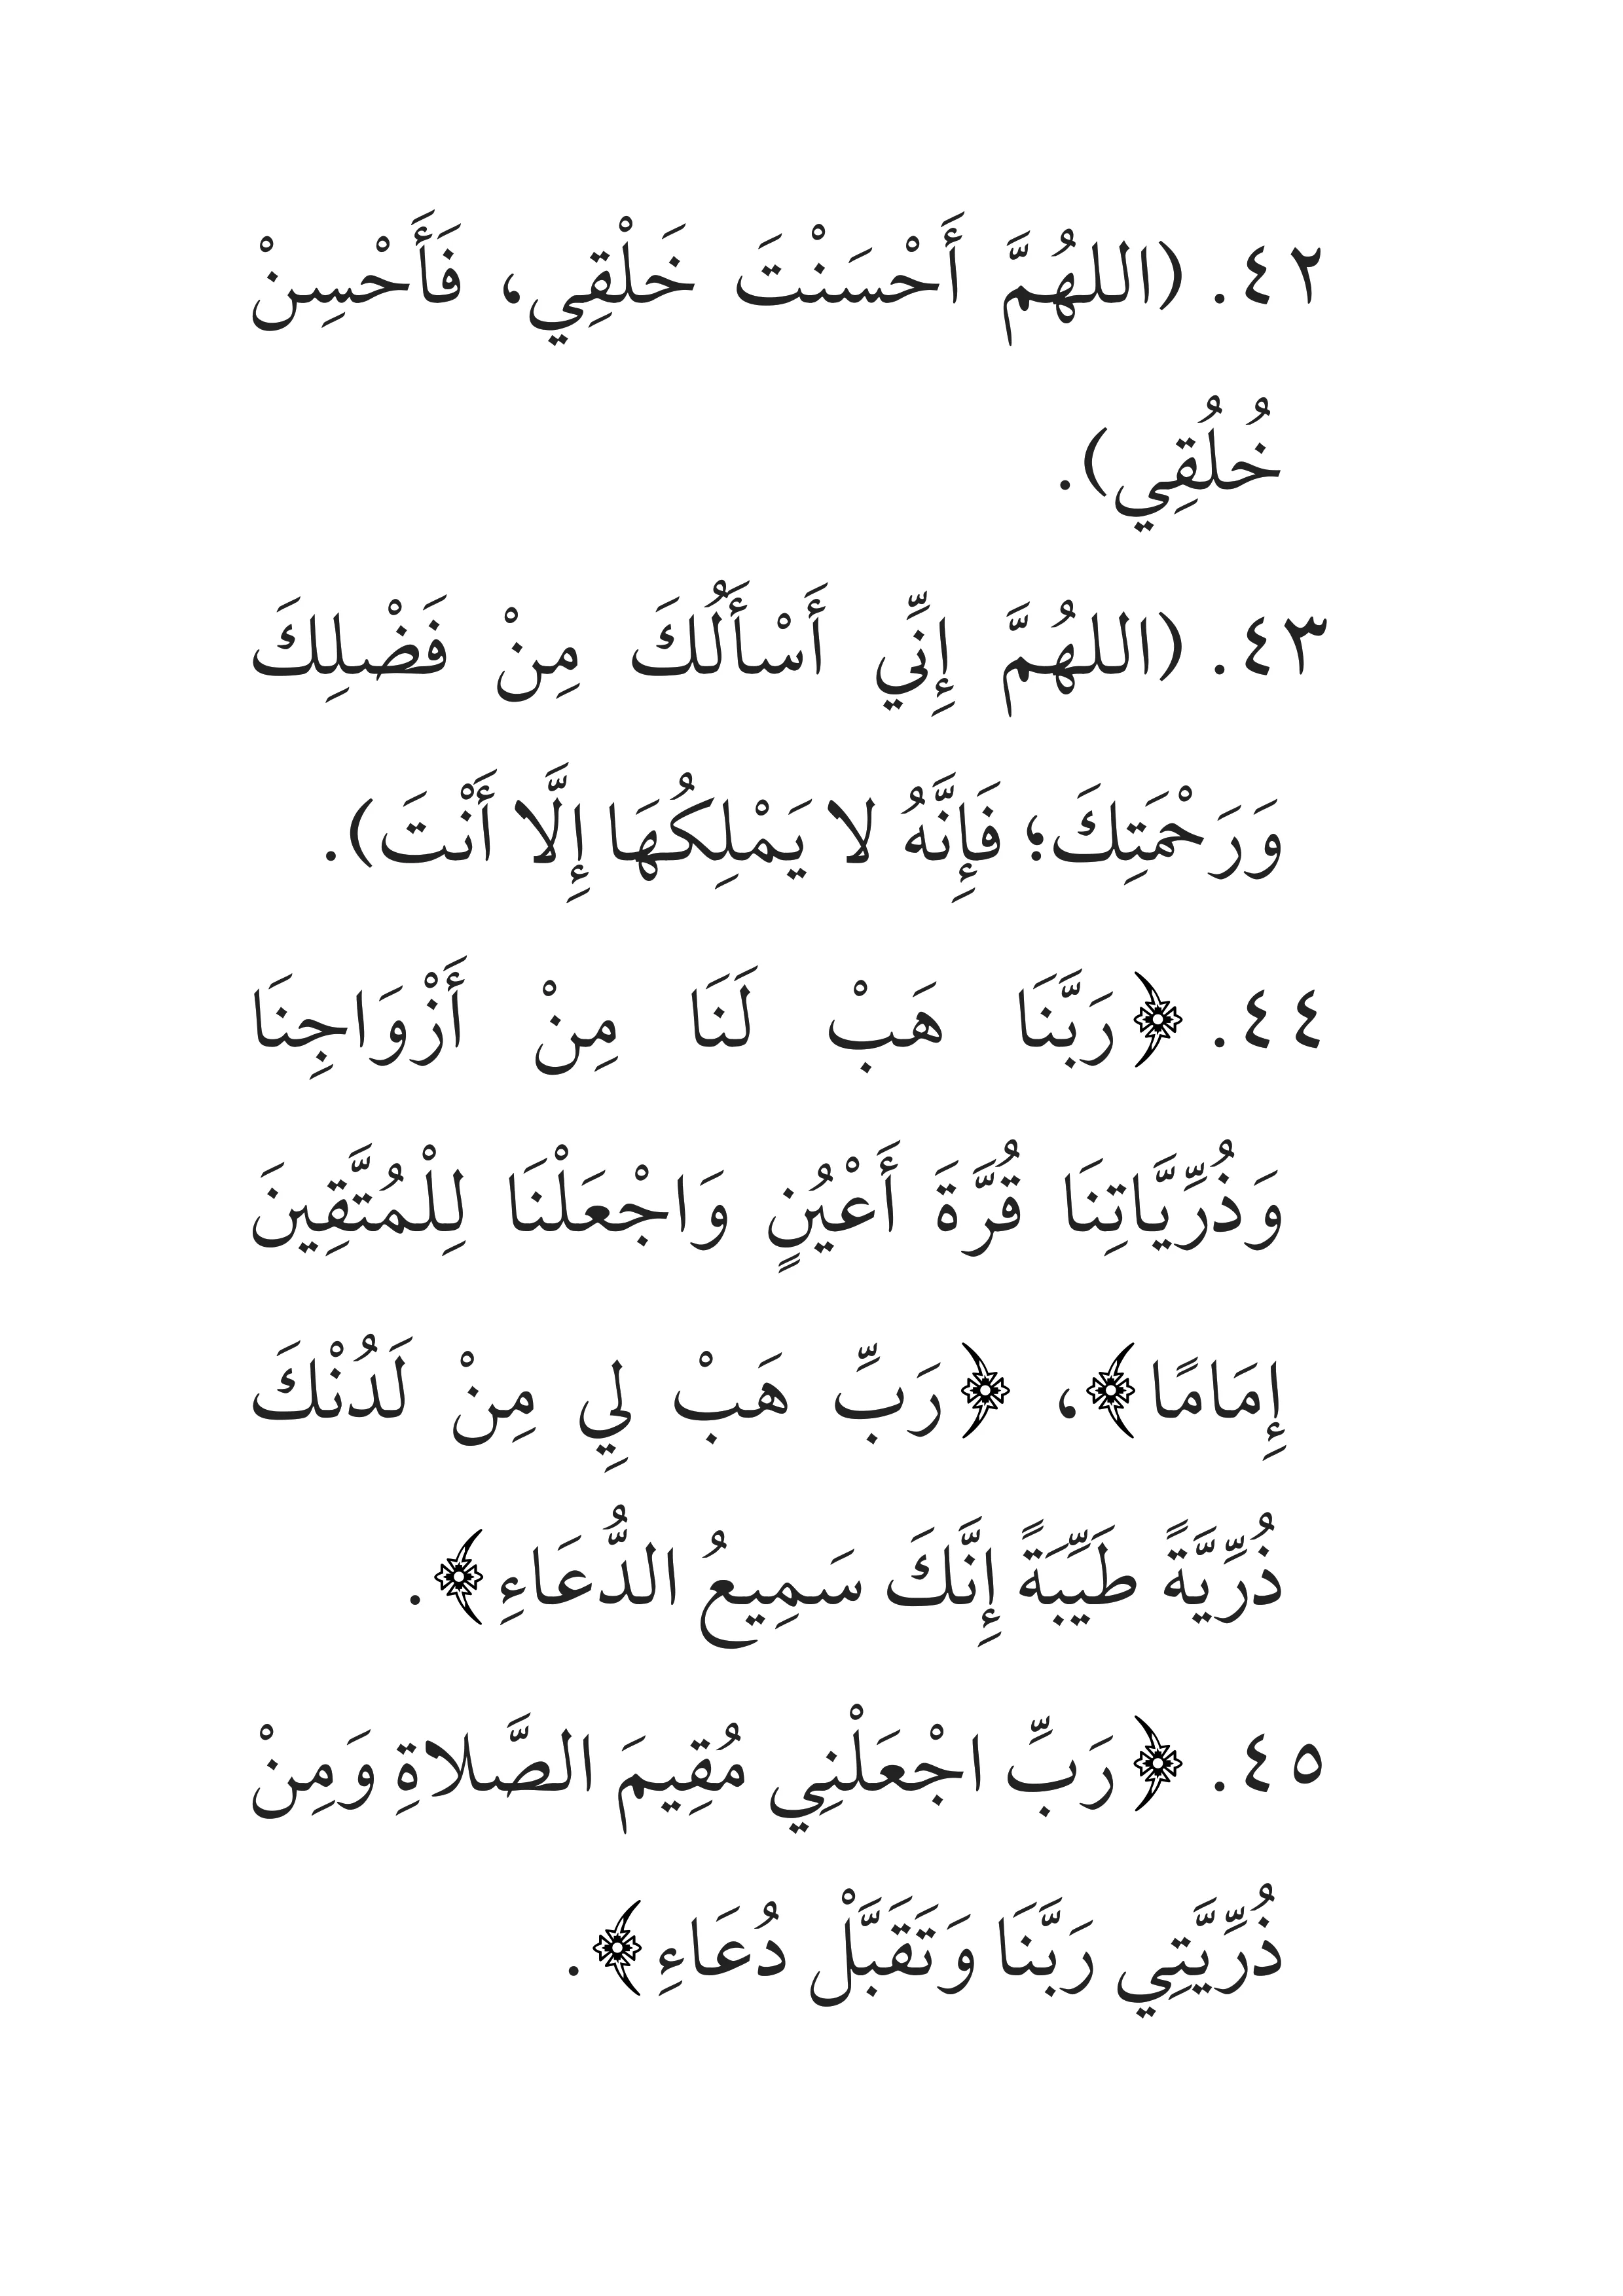 ٤٢. (اللهُمَّ أَحْسَنْتَ خَلْقِي، فَأَحْسِنْ
خُلُقِي).
٤٣. (اللهُمَّ إِنِّي أَسْأَلُكَ مِنْ فَضْلِكَ
وَرَحْمَتِكَ؛ فَإِنَّهُ لا يَمْلِكُهَا إِلَّا أَنْتَ).
٤٤. ﴿رَبَّنَا هَبْ لَنَا مِنْ أَزْوَاجِنَا
وَذُرِّيَّاتِنَا قُرَّةَ أَعْيُنٍ وَاجْعَلْنَا لِلْمُتَّقِينَ
إِمَامًا﴾، ﴿رَبِّ هَبْ لِي مِنْ لَدُنْكَ
ذُرِّيَّةً طَيِّبَةً إِنَّكَ سَمِيعُ الدُّعَاءِ﴾.
٤٥. ﴿رَبِّ اجْعَلْنِي مُقِيمَ الصَّلاةِ وَمِنْ
ذُرِّيَّتِي رَبَّنَا وَتَقَبَّلْ دُعَاءِ﴾.